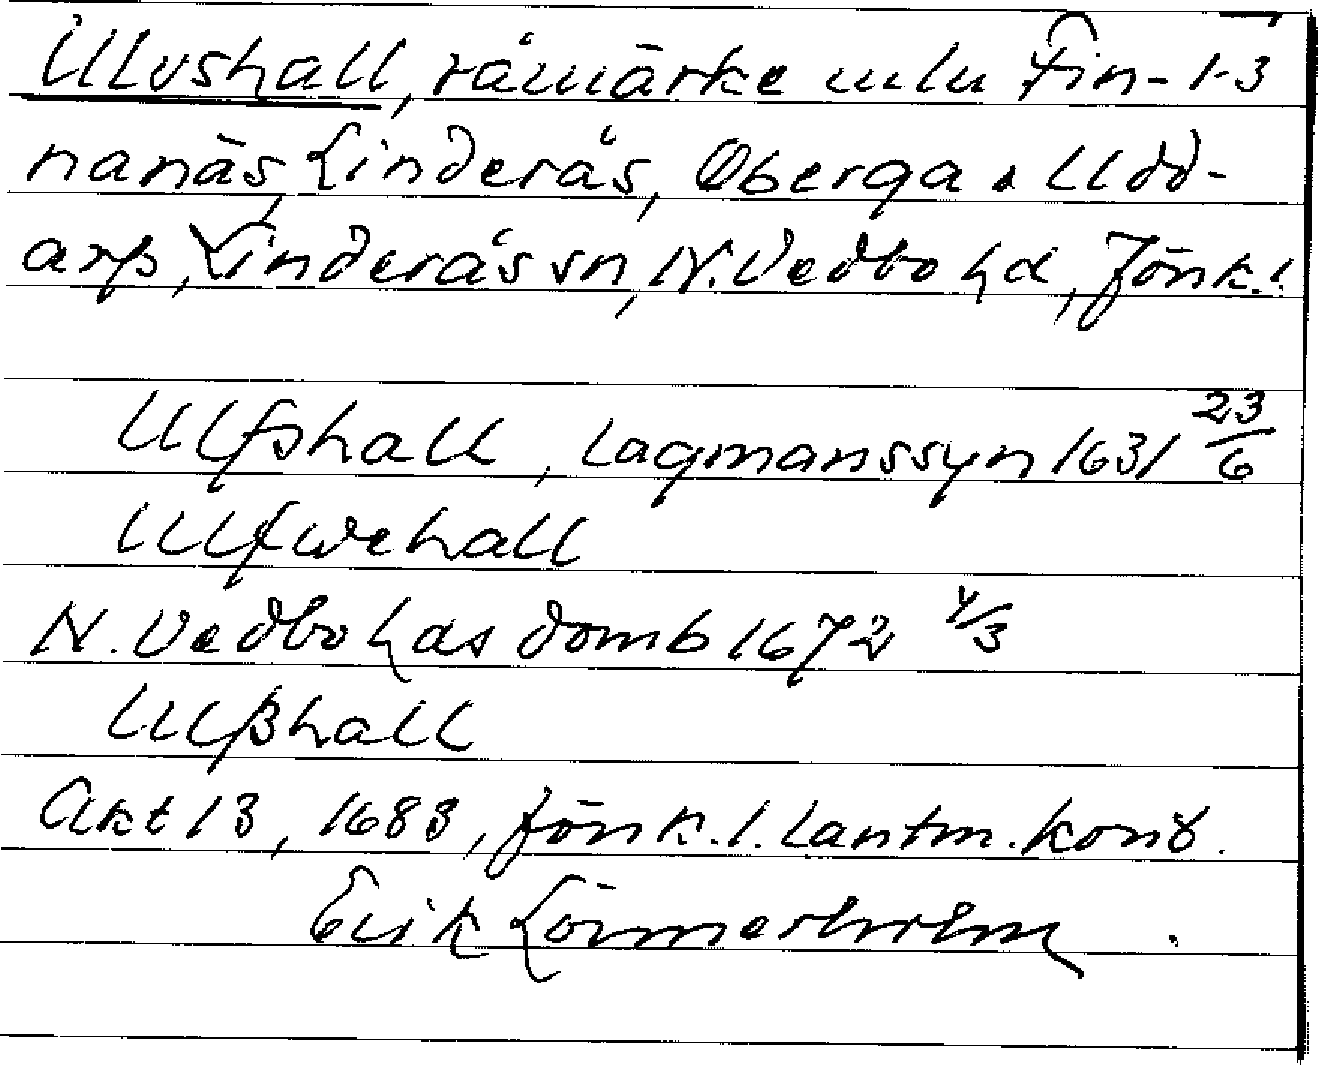 Ulvshall, råmärke mlu Fin- 1-3
nanäs, Linderås, Öberga o Udd-
arp, Linderås sn, N. Vedbo hd, Jönk. l.
Ulfshall, Lagmanssyn 1631 23/6
Ulfwehall
N. Vedbo hds domb 1672 4/3
Ulfßhall
Akt 13, 1683, Jönk. l. Lantm. kont.
Erik Lönnerholm